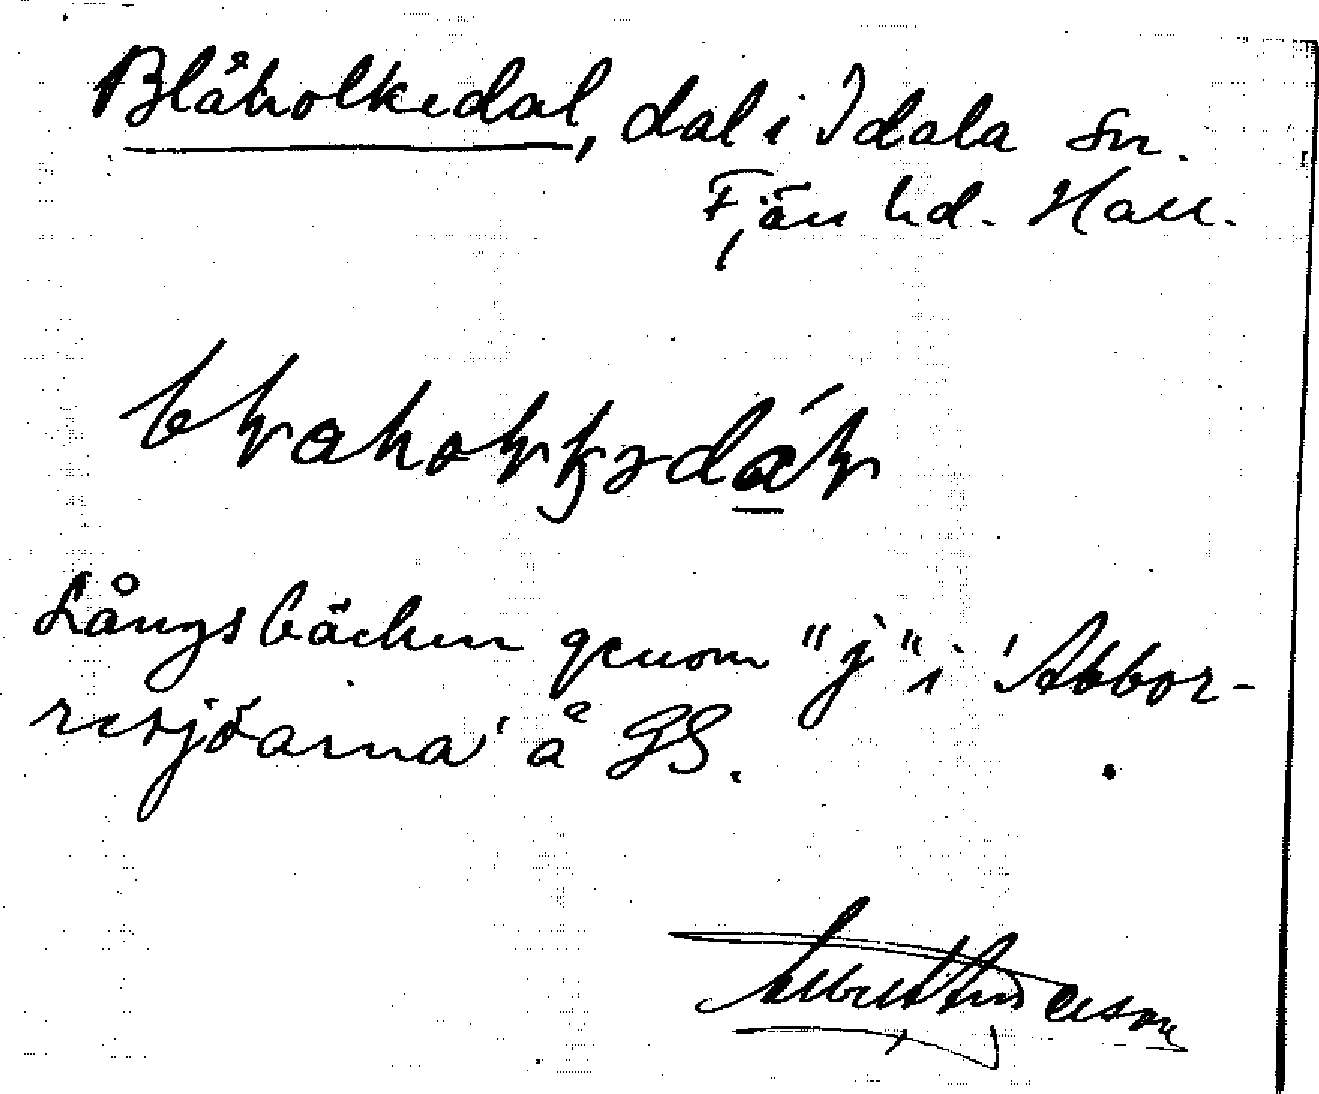 Blåholkedal, dal i Idala sn.
Fjäre hd. Hall.
Långs bäcken genom "j" i 'Abbor-
resjöarna' å GS.
Albert Anderson